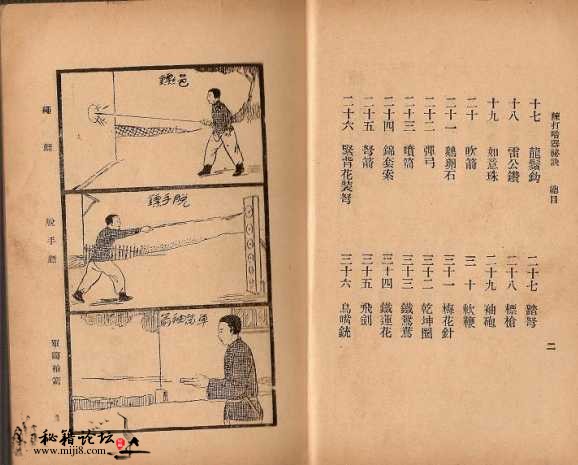 練打暗器秘訣 總目
十七 龍鬚鈎
十八 雷公鑽
十九 如意珠
二十 吹箭
二十一 鵝卵石
二十二 彈弓
二十三 噴筒
二十四 錦套索
二十五 弩箭
二十六 緊背花裝弩
二十七 踏弩
二十八 標槍
二十九 袖砲
三十 軟鞭
三十一 梅花針
三十二 乾坤圈
三十三 鐵鴛鴦
三十四 鐵蓮花
三十五 飛劍
三十六 鳥嘴銃
二
脫手鏢
單筒袖箭
繩鏢
脫手鏢
單筒袖箭
秘籍论坛
www.miji8.com